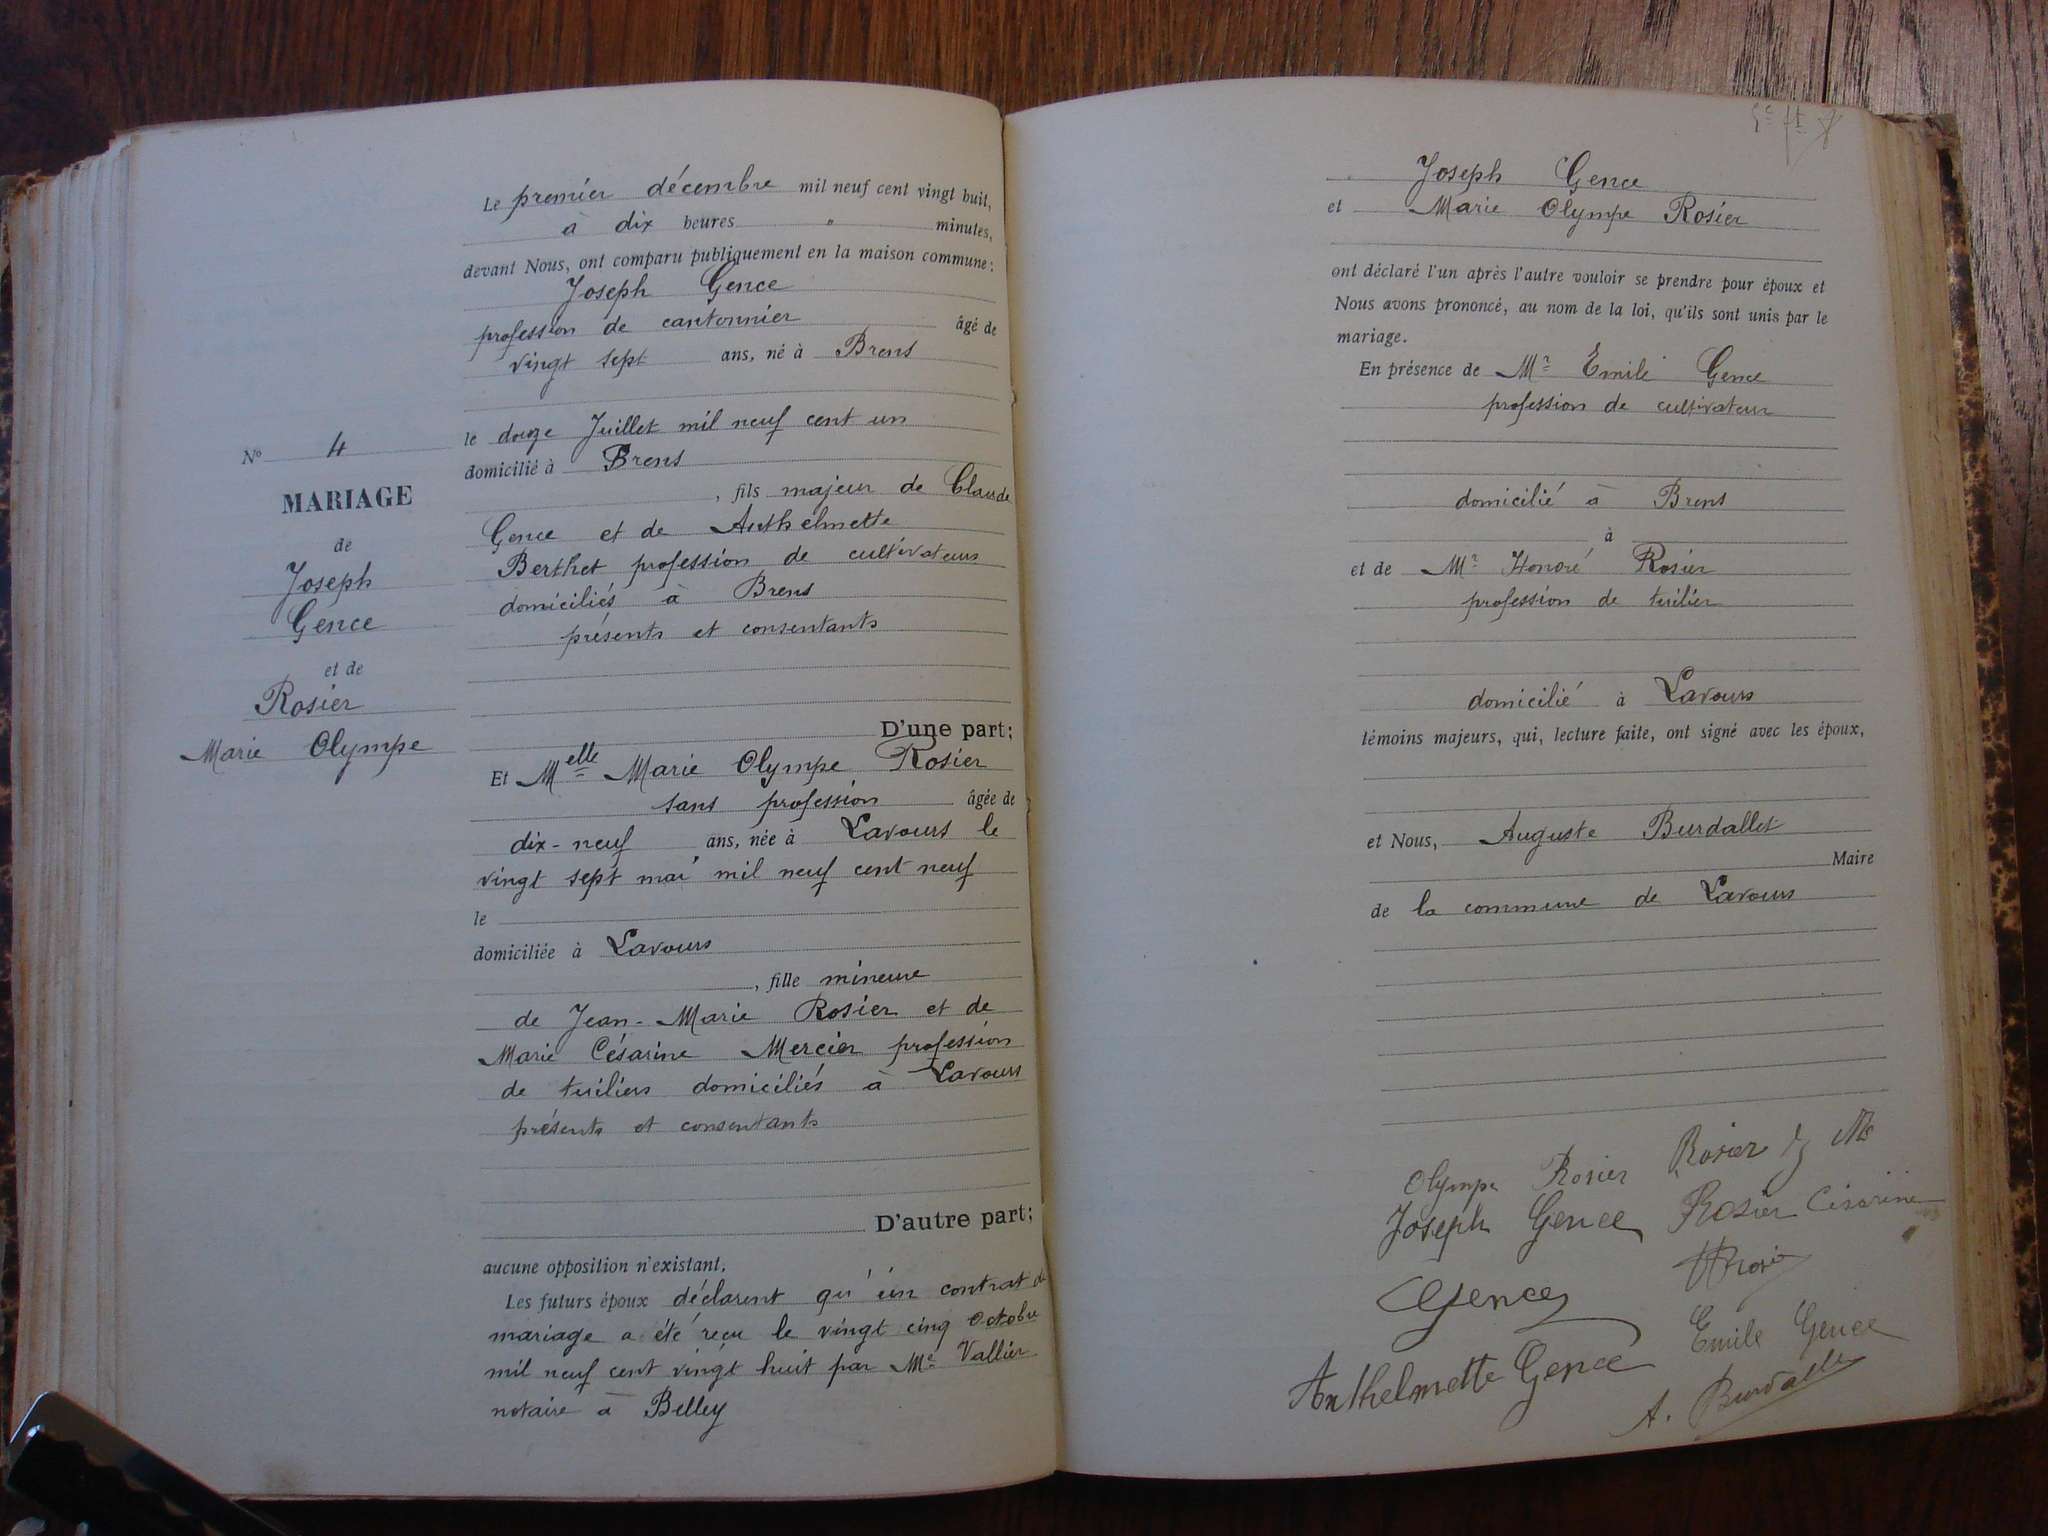 N° 4
MARIAGE
de
Joseph
Gence
et de
Rosier
Marie Olympe
Le premier décembre mil neuf cent vingt huit,
à dix heures " minutes,
devant Nous, ont comparu publiquement en la maison commune :
Joseph Gence
profession de cantonnier âgé de
vingt sept ans, né à Brens
le douze Juillet mil neuf cent un
domicilié à Brens
, fils majeur de Claude
Gence et de Anthelmette
Berthet profession de cultivateurs
domiciliés à Brens
présents et consentants
D'une part;
Et Melle Marie Olympe Rosier
sans profession âgée de
dix-neuf ans, née à Lavours le
vingt sept mai mil neuf cent neuf
le
domiciliée à Lavours
, fille mineure
de Jean-Marie Rosier et de
Marie Césarine Mercier profession
de tuiliers domiciliés à Lavours
présents et consentants
D'autre part;
aucune opposition n'existant.
Les futurs époux déclarent qu'un contrat de
mariage a été reçu le vingt cinq Octobre
mil neuf cent vingt huit par Me Vallier
notaire à Belley
Joseph Gence
et Marie Olympe Rosier
ont déclaré l'un après l'autre vouloir se prendre pour époux et
Nous avons prononcé, au nom de la loi, qu'ils sont unis par le
mariage.
En présence de Mr Emile Gence
profession de cultivateur
domicilié à Brens
à
et de Mr Honoré Rosier
profession de tuilier
domicilié à Lavours
témoins majeurs, qui, lecture faite, ont signé avec les époux,
et Nous, Auguste Burdallet
Maire
de la commune de Lavours
Olympe Rosier Rosier
Joseph Gence Rosier Césarine
Gence
Emile Gence
Anthelmette Gence
A. Burdallet